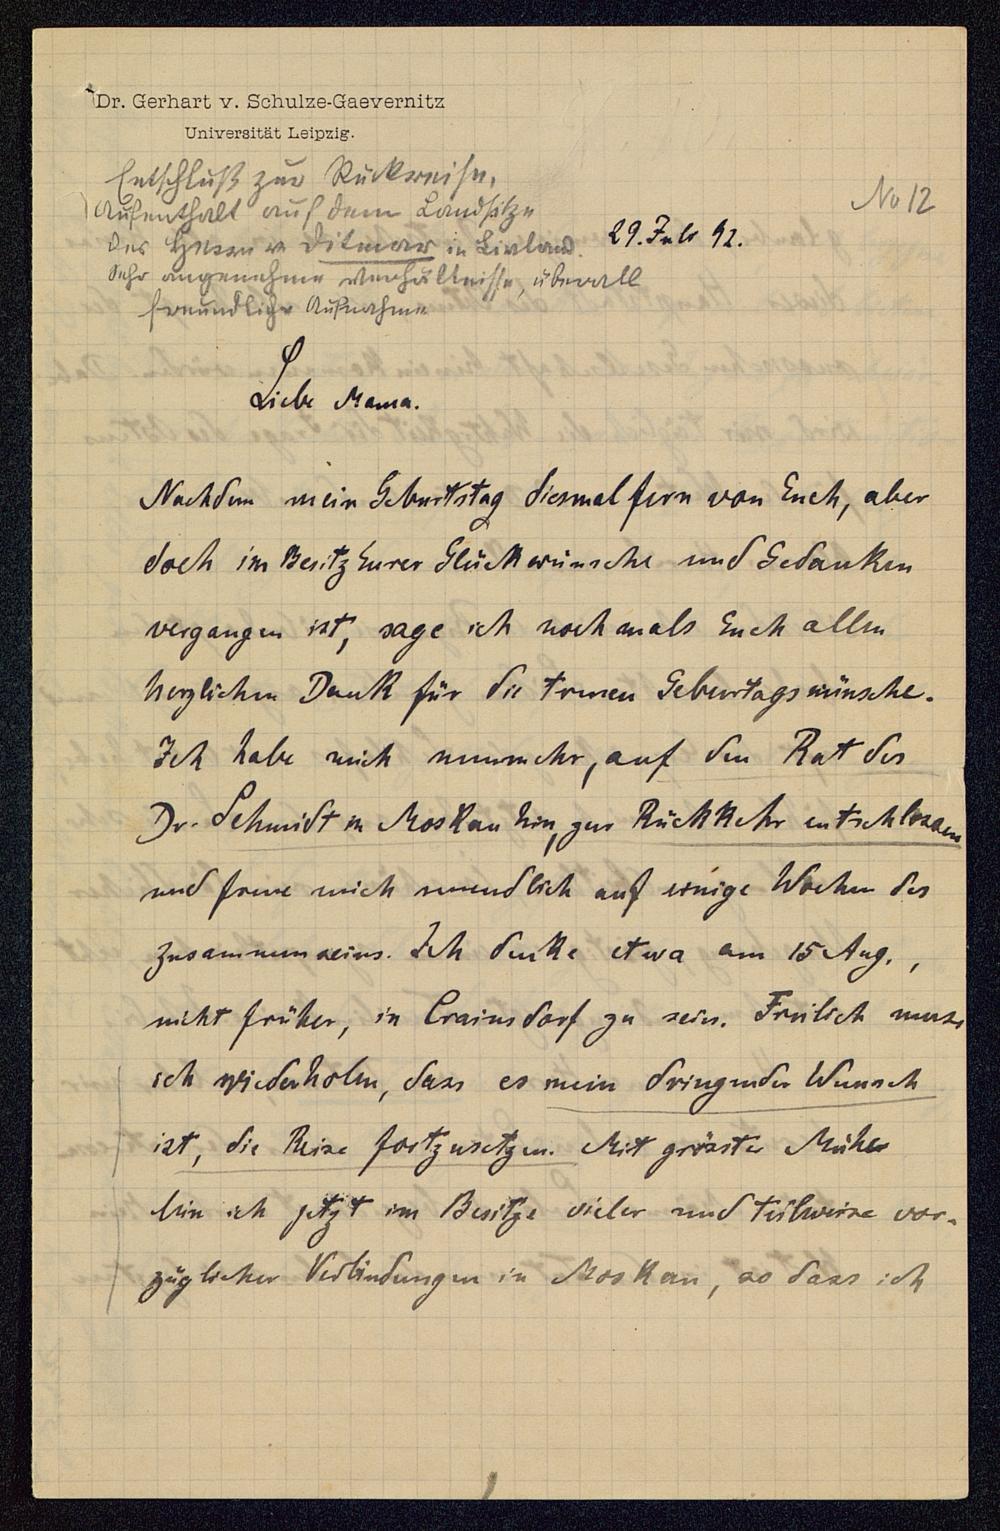 Dr. Gerhart v. Schulze-Gaevernitz
Universität Leipzig.
Entschluß zur Rückreise,
Aufenthalt auf dem Landsitze
des Herrn v Ditmar in Livland.
Sehr angenehme Verhältnisse, überall
freundliche Aufnahme
No 12
29. Juli 92.
Liebe Mama.
Nachdem mein Geburtstag diesmal fern von Euch, aber
doch im Besitz Eurer Glückwünsche und Gedanken
vergangen ist, sage ich nochmals Euch allen
herzlichen Dank für die treuen Geburtagswünsche.
Ich habe mich nunmehr, auf den Rat des
Dr. Schmidt in Moskau hin, zur Rückkehr entschlossen
und freue mich unendlich auf einige Wochen des
zusammenseins. Ich denke etwa am 15 Aug.,
nicht früher, in Crainsdorf zu sein. Freilich muss
ich wiederholen, dass es mein dringender Wunsch
ist, die Reise fortzusetzen. Mit grösster Mühe
bin ich jetzt im Besitze vieler und teilweise vor-
züglicher Verbindungen in Moskau, so dass ich